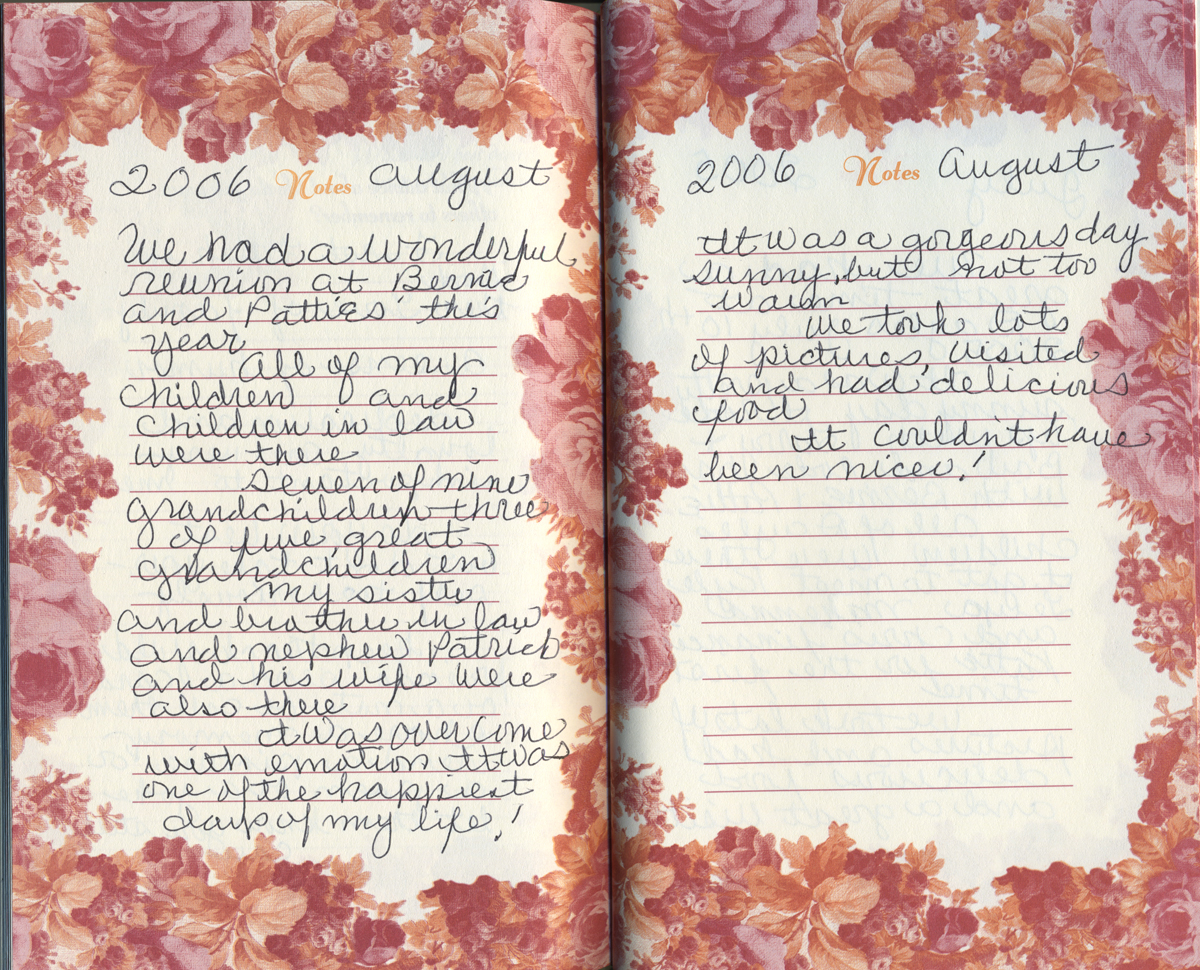 2006 Notes August
We had a wonderful
reunion at Bernie
and Patties' this
year
All of my
children and
children in law
were there
Seven of nine
grandchildren three
of five great
grandchildren
my sister
and brother in law
and nephew Patrick
and his wife were
also there
I was over come
with emotion It was
one of the happiest
days of my life!
2006 Notes August
It was a gorgeous day
sunny, but not too
warm
We took lots
of pictures, visited
and had delicious
food
It couldn't have
been nicer!